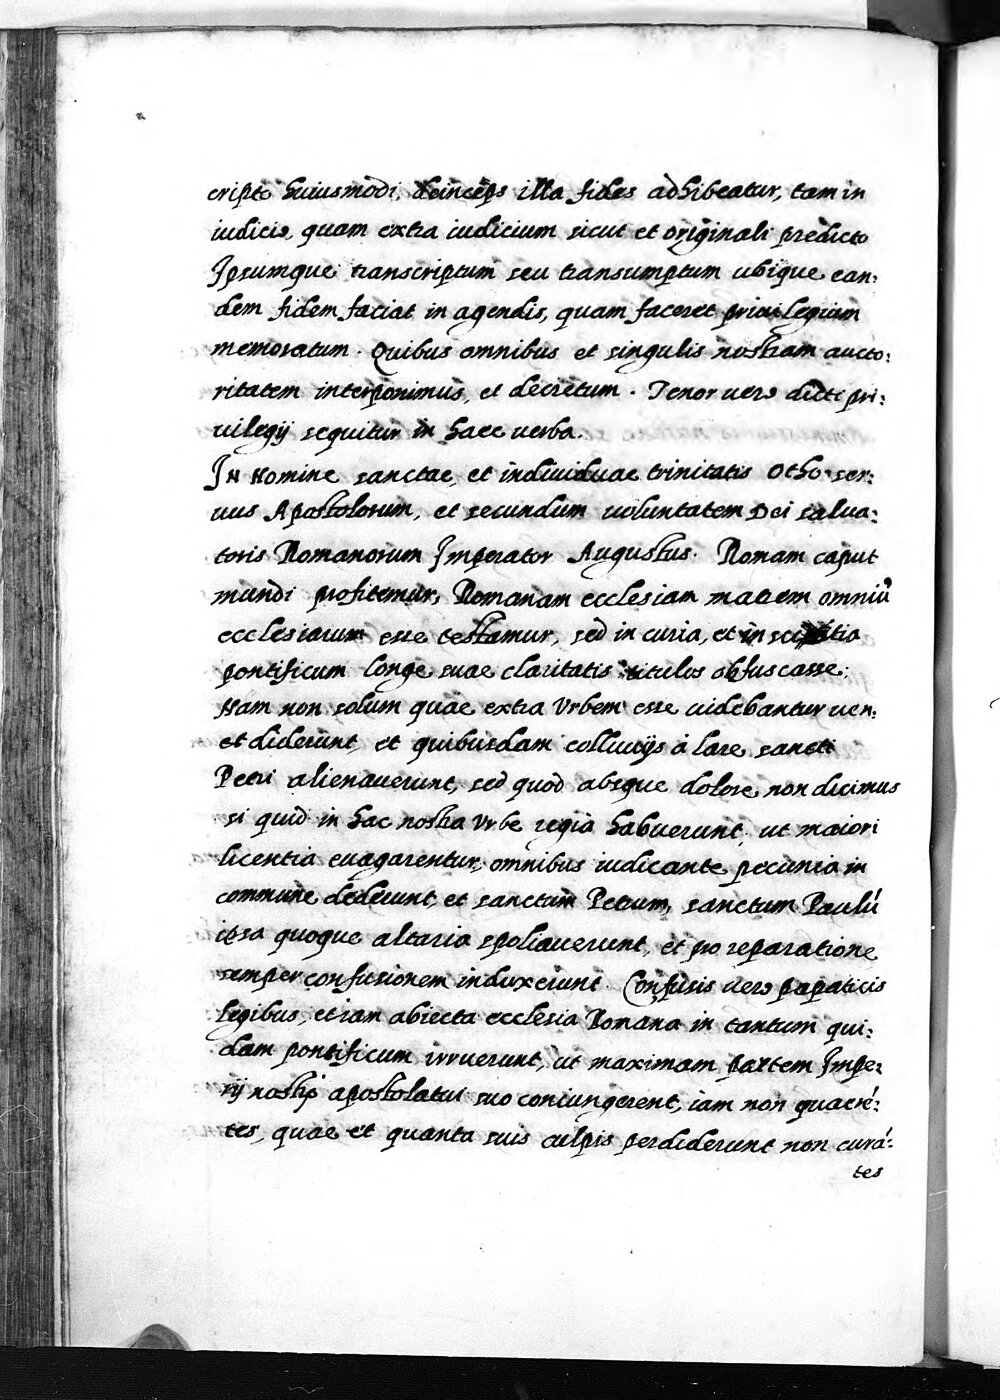 cripto huiusmodi, deinceps illa fides adhibeatur, tam in
iudicio, quam extra iudicium sicut et originali predicto
Ipsumque transcriptum seu transumptum ubique ean:
dem fidem faciat in agendis, quam faceret priuilegium
memoratum. Quibus omnibus et singulis nostram aucto:
ritatem interponimus, et decretum. Tenor vero dicti pri:
uilegij sequitur in haec verba.
In Nomine sanctae, et indiuiduae trinitatis Otho ser:
uus Apostolorum, et secundum uoluntatem Dei salua:
toris Romanorum Imperator Augustus. Romam caput
mundi profitemur, Romanam ecclesiam matrem omniũ
ecclesiarum esse testamur, sed in curia, et in
pontificum longe suae claritatis titulos obfuscasse:
Nam non solum quae extra Vrbem esse uidebantur uen:
et diderunt, et quibusdam colluuijs à lare sancti
Petri alienauerunt, sed quod absque dolore non dicimus
si quid in hac nostra Vrbe regia habuerunt, ut maiori
licentia euagarentur, omnibus iudicante pecunia in
commune dederunt, et sanctum Petrum, sanctum Paulũ
ipsa quoque altaria spoliauerunt, et pro reparatione
semper confusionem induxerunt. Confusis uero papaticis
legibus, et iam abiecta ecclesia Romana in tantum qui:
dam pontificum irruerunt, ut maximam partem Impe:
rij nostri apostolatui suo coniungerent, iam non quaerẽ:
tes, quae et quanta suis culpis perdiderunt non curã:
tes